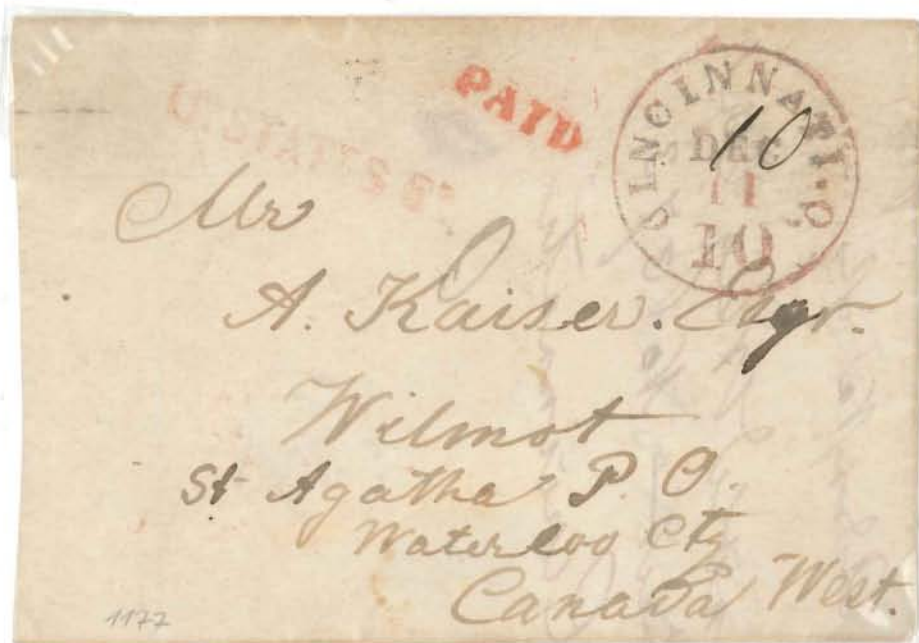 PAID
U. STATES
CINCINNATI. O.
DEC
11
10
10
Mr
A. Kaiser. Esqr.
Wilmot
St Agatha P. O.
Waterloo Cty
Canada West.
1177